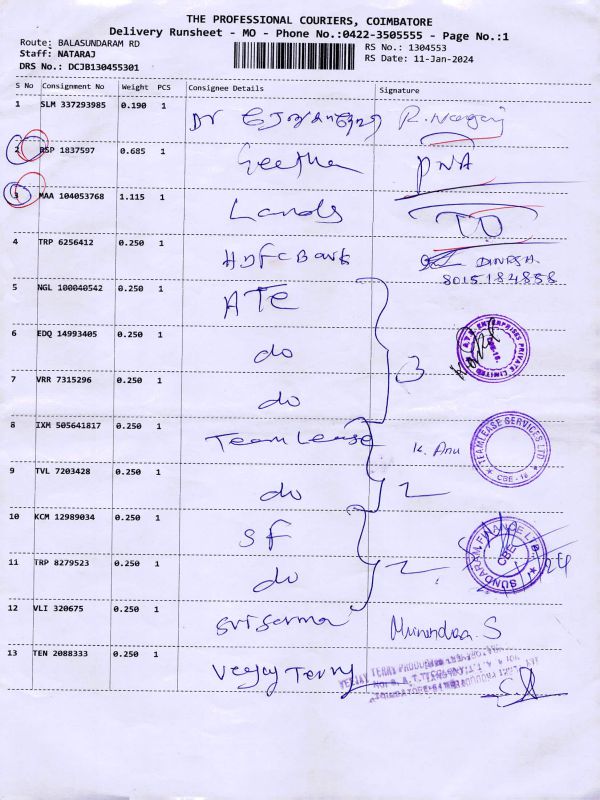 THE PROFESSIONAL COURIERS, COIMBATORE
Delivery Runsheet - MO - Phone No.:0422-3505555 - Page No.:1
Route: BALASUNDARAM RD
RS No.: 1304553
Staff: NATARAJ
RS Date: 11-Jan-2024
DRS No.: DCJB130455301
S No Consignment No Weight PCS Consignee Details Signature
1 SLM 337293985 0.190 1 Dr
2 RSP 1837597 0.685 1 Geetha PNA
3 MAA 104053768 1.115 1 TO
4 TRP 6256412 0.250 1 HDFC Bank DINESH
8015184858
5 NGL 100040542 0.250 1 ATE
6 EDQ 14993405 0.250 1 do
A.T.E. ENTERPRISES PRIVATE LIMITED
7 VRR 7315296 0.250 1 do 3
8 IXM 505641817 0.250 1 TeamLease K. Anu
TEAMLEASE SERVICES LTD
CBE - 18
9 TVL 7203428 0.250 1 do 2
10 KCM 12989034 0.250 1 SF
SUNDARAM FINANCE LTD.
CBE
11 TRP 8279523 0.250 1 do 2
12 VLI 320675 0.250 1 Sri Sarma S
13 TEN 2088333 0.250 1 Veejay Terry
VEEJAY TERRY